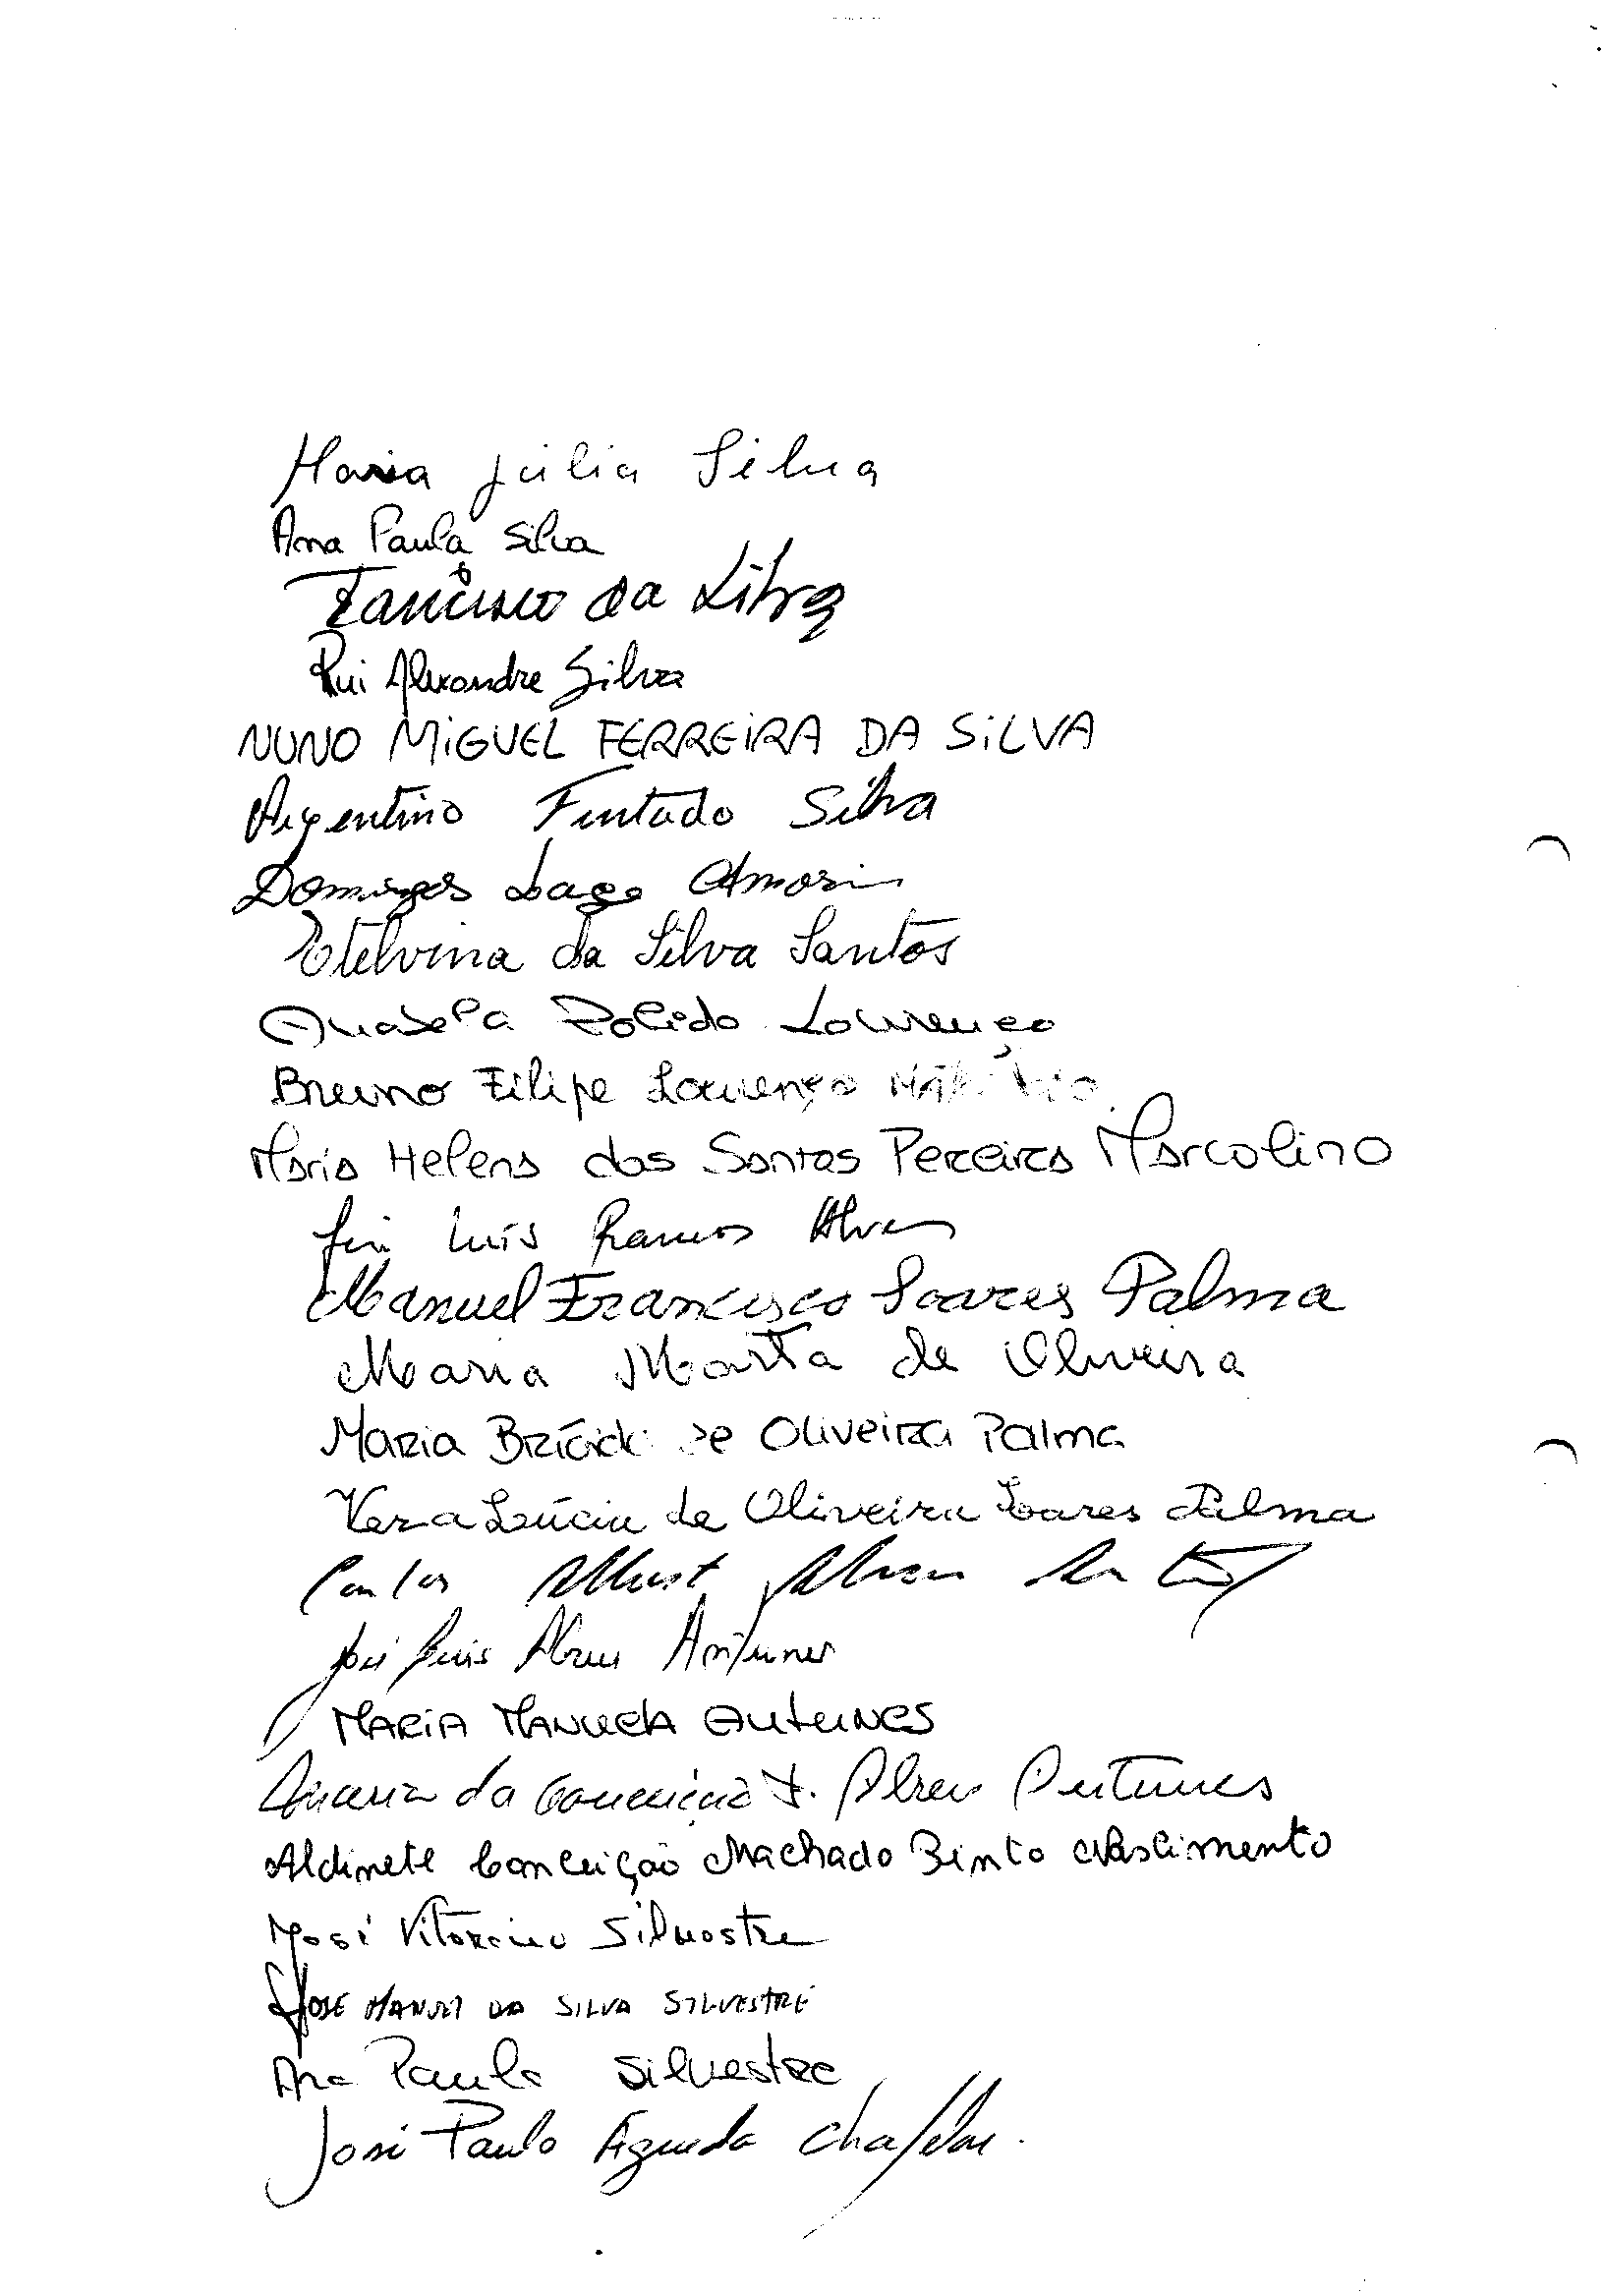 Maria Júlia Silva
Ana Paula Silva
Francisco da Silva
Rui Alexandre Silva
NUNO MIGUEL FERREIRA DA SILVA
Argentino Furtado Silva
Domingos Lago Amorim
Etelvina da Silva Santos
Anabela Polido Lourenço
Bruno Filipe Lourenço
Maria Helena dos Santos Pereira Marcolino
José Luís Ramos Alves
Manuel Francisco Soares Palma
Maria Marta de Oliveira
Maria Brígida de Oliveira Palma
Vera Lúcia de Oliveira Soares Palma
Carlos Albert Abreu
José Luis Abreu Antunes
MARIA MANUELA ANTUNES
Maria da Conceição F. Abreu Antunes
Aldinete Conceição Machado Pinto Nascimento
José Vitorino Silvestre
JOSÉ MANUEL DA SILVA SILVESTRE
Ana Paula Silvestre
José Paulo Águeda